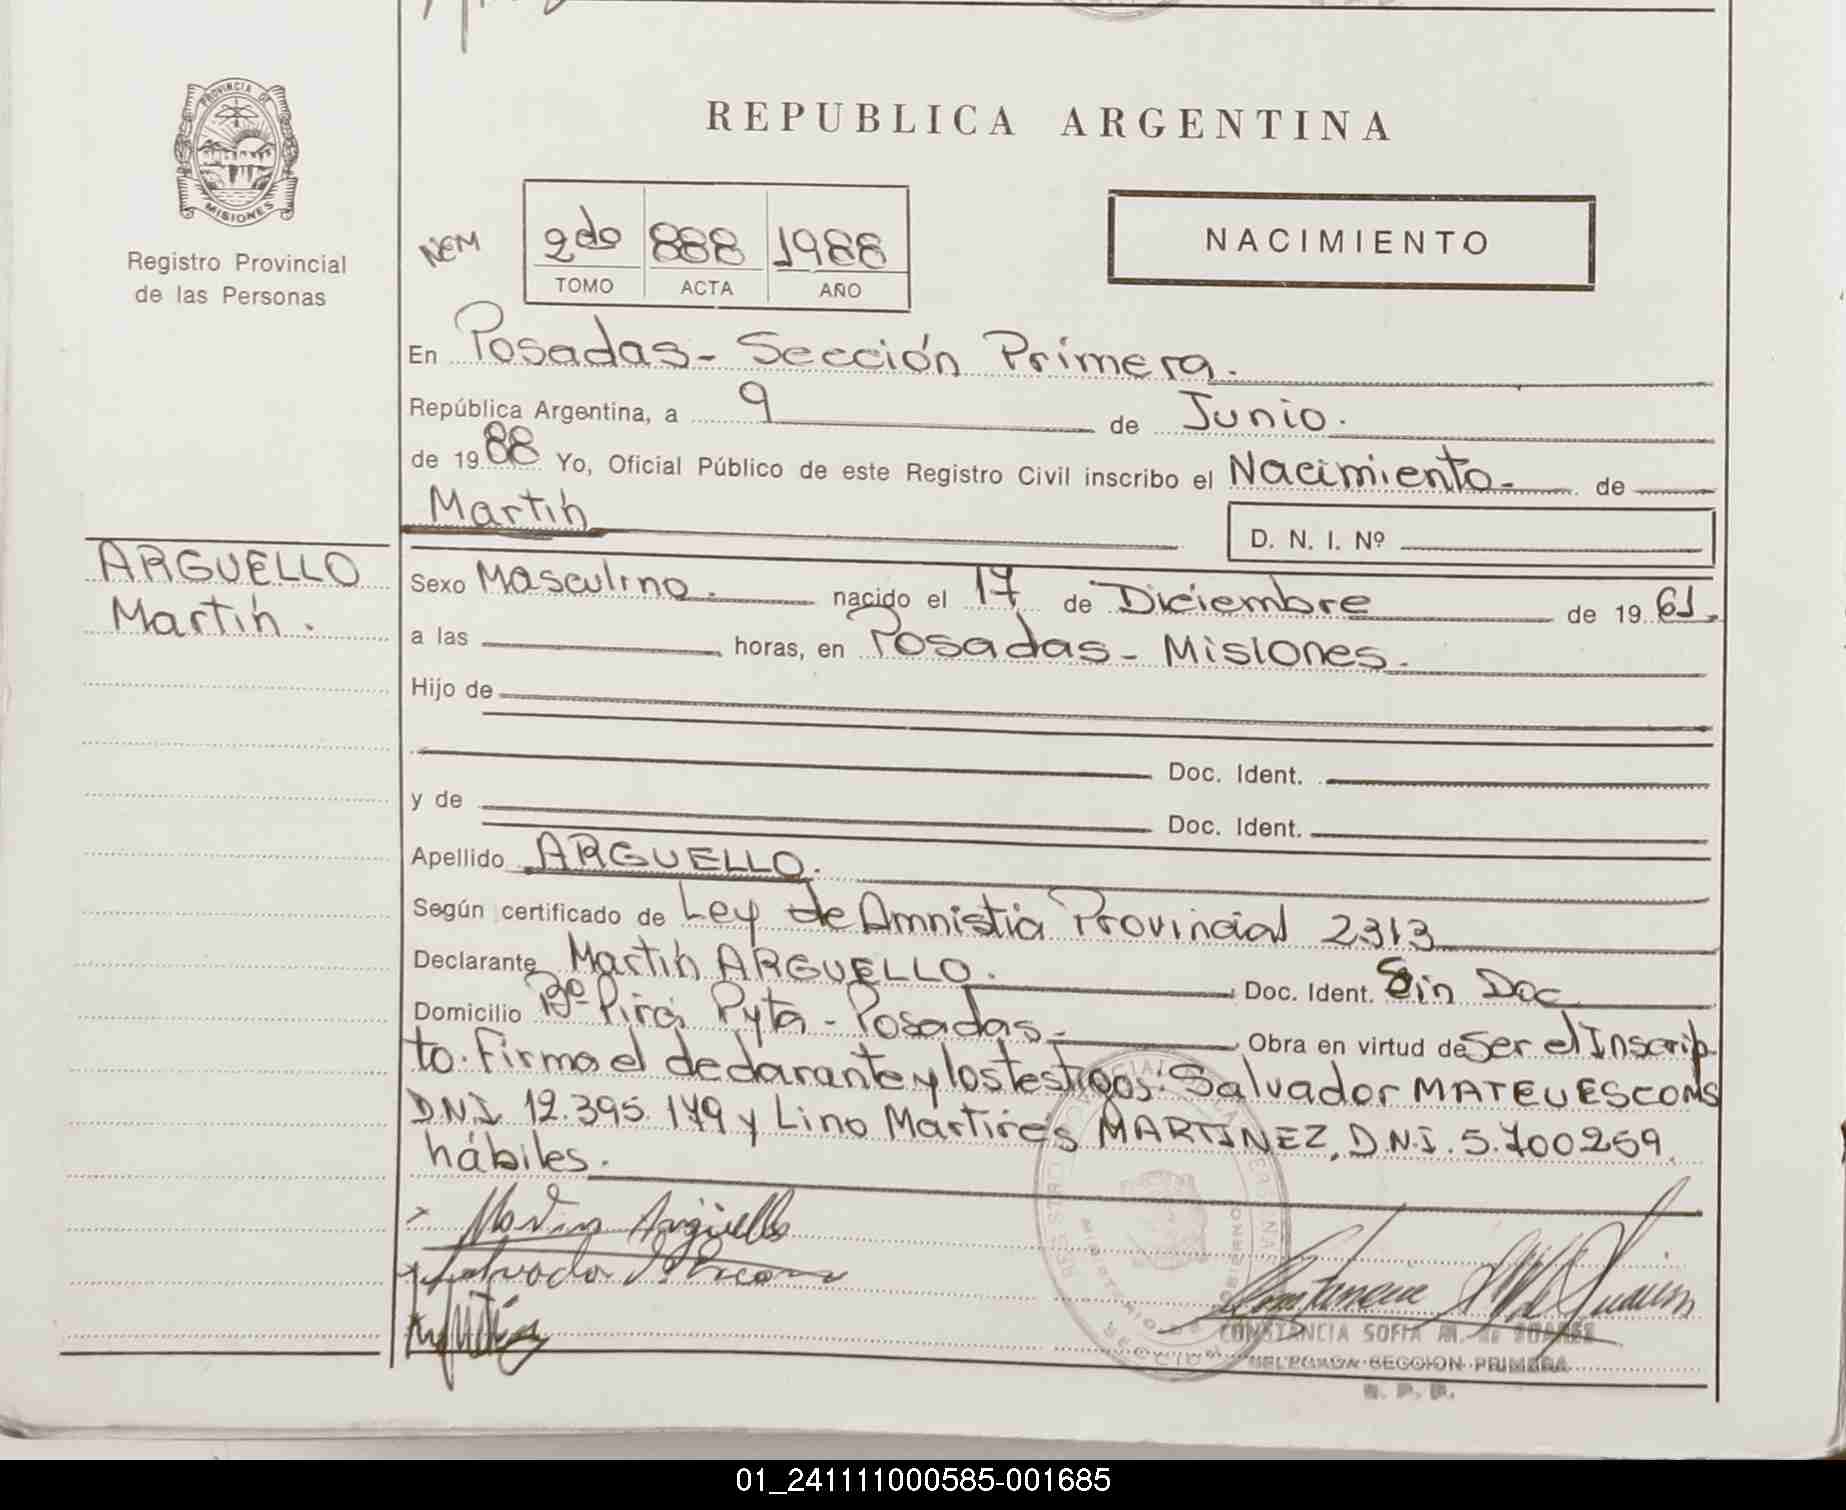 PROVINCIA DE
MISIONES
Registro Provincial
de las Personas
REPUBLICA ARGENTINA
NACIMIENTO
NEM
2do 888 1988
TOMO ACTA AÑO
En Posadas - Sección Primera.
República Argentina, a 9 de Junio.
de 1988 Yo, Oficial Público de este Registro Civil inscribo el Nacimiento de
Martín
D. N. I. Nº
ARGUELLO
Martín.
Sexo Masculino. nacido el 17 de Diciembre de 1961.
a las horas, en Posadas - Misiones.
Hijo de
Doc. Ident.
y de
Doc. Ident.
Apellido ARGUELLO.
Según certificado de Ley de Amnistia Provincial 2313
Declarante Martín ARGUELLO. Doc. Ident. Sin Doc
Domicilio Bº Pirá Pytá - Posadas. Obra en virtud de Ser el Inscrip
to. Firma el declarante y los testigos: Salvador MATEU ESCOMS
D.N.I. 12.395.179 y Lino Martires MARTINEZ, D.N.I. 5.700259
hábiles.
Martin Argüello
CONSTANCIA SOFIA M. de SUARES
DELEGADA SECCION PRIMERA
R. P. P.
01_241111000585-001685